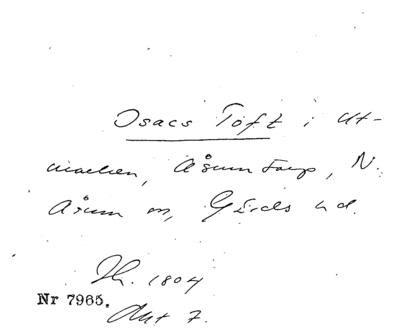 Isacs Toft i ut-
marken, Åsumtorp, N.
Åsum sn, Gärds hd.
Sk. 1804
Nr 7965.
Akt 7.